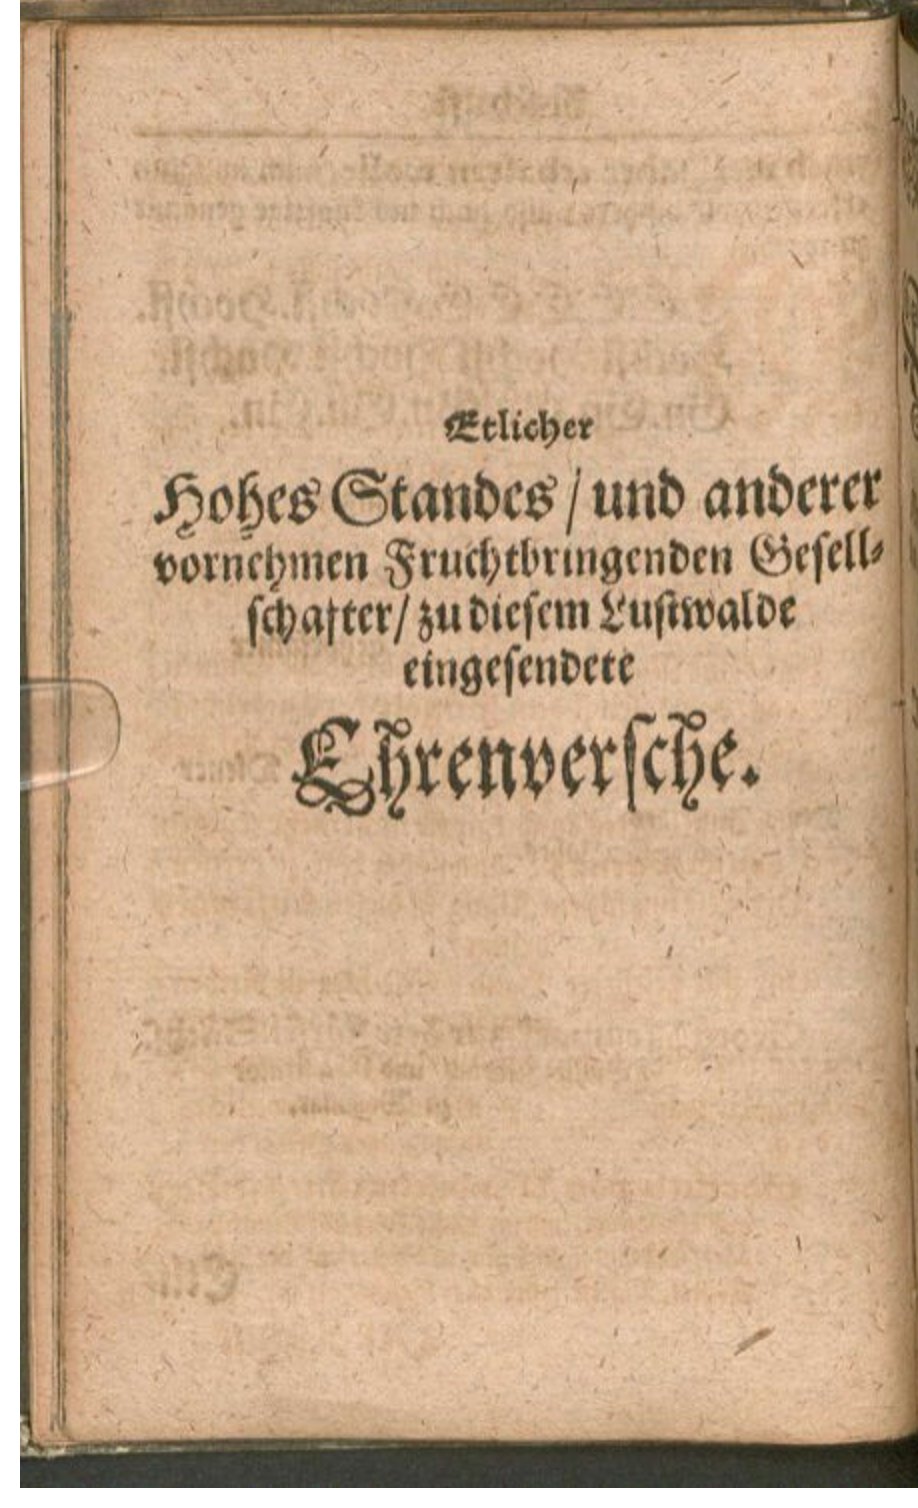 Etlicher
Hohes Standes / und anderer
vornehmen Fruchtbringenden Gesell-
schafter / zu diesem Lustwalde
eingesendete
Ehrenversche.